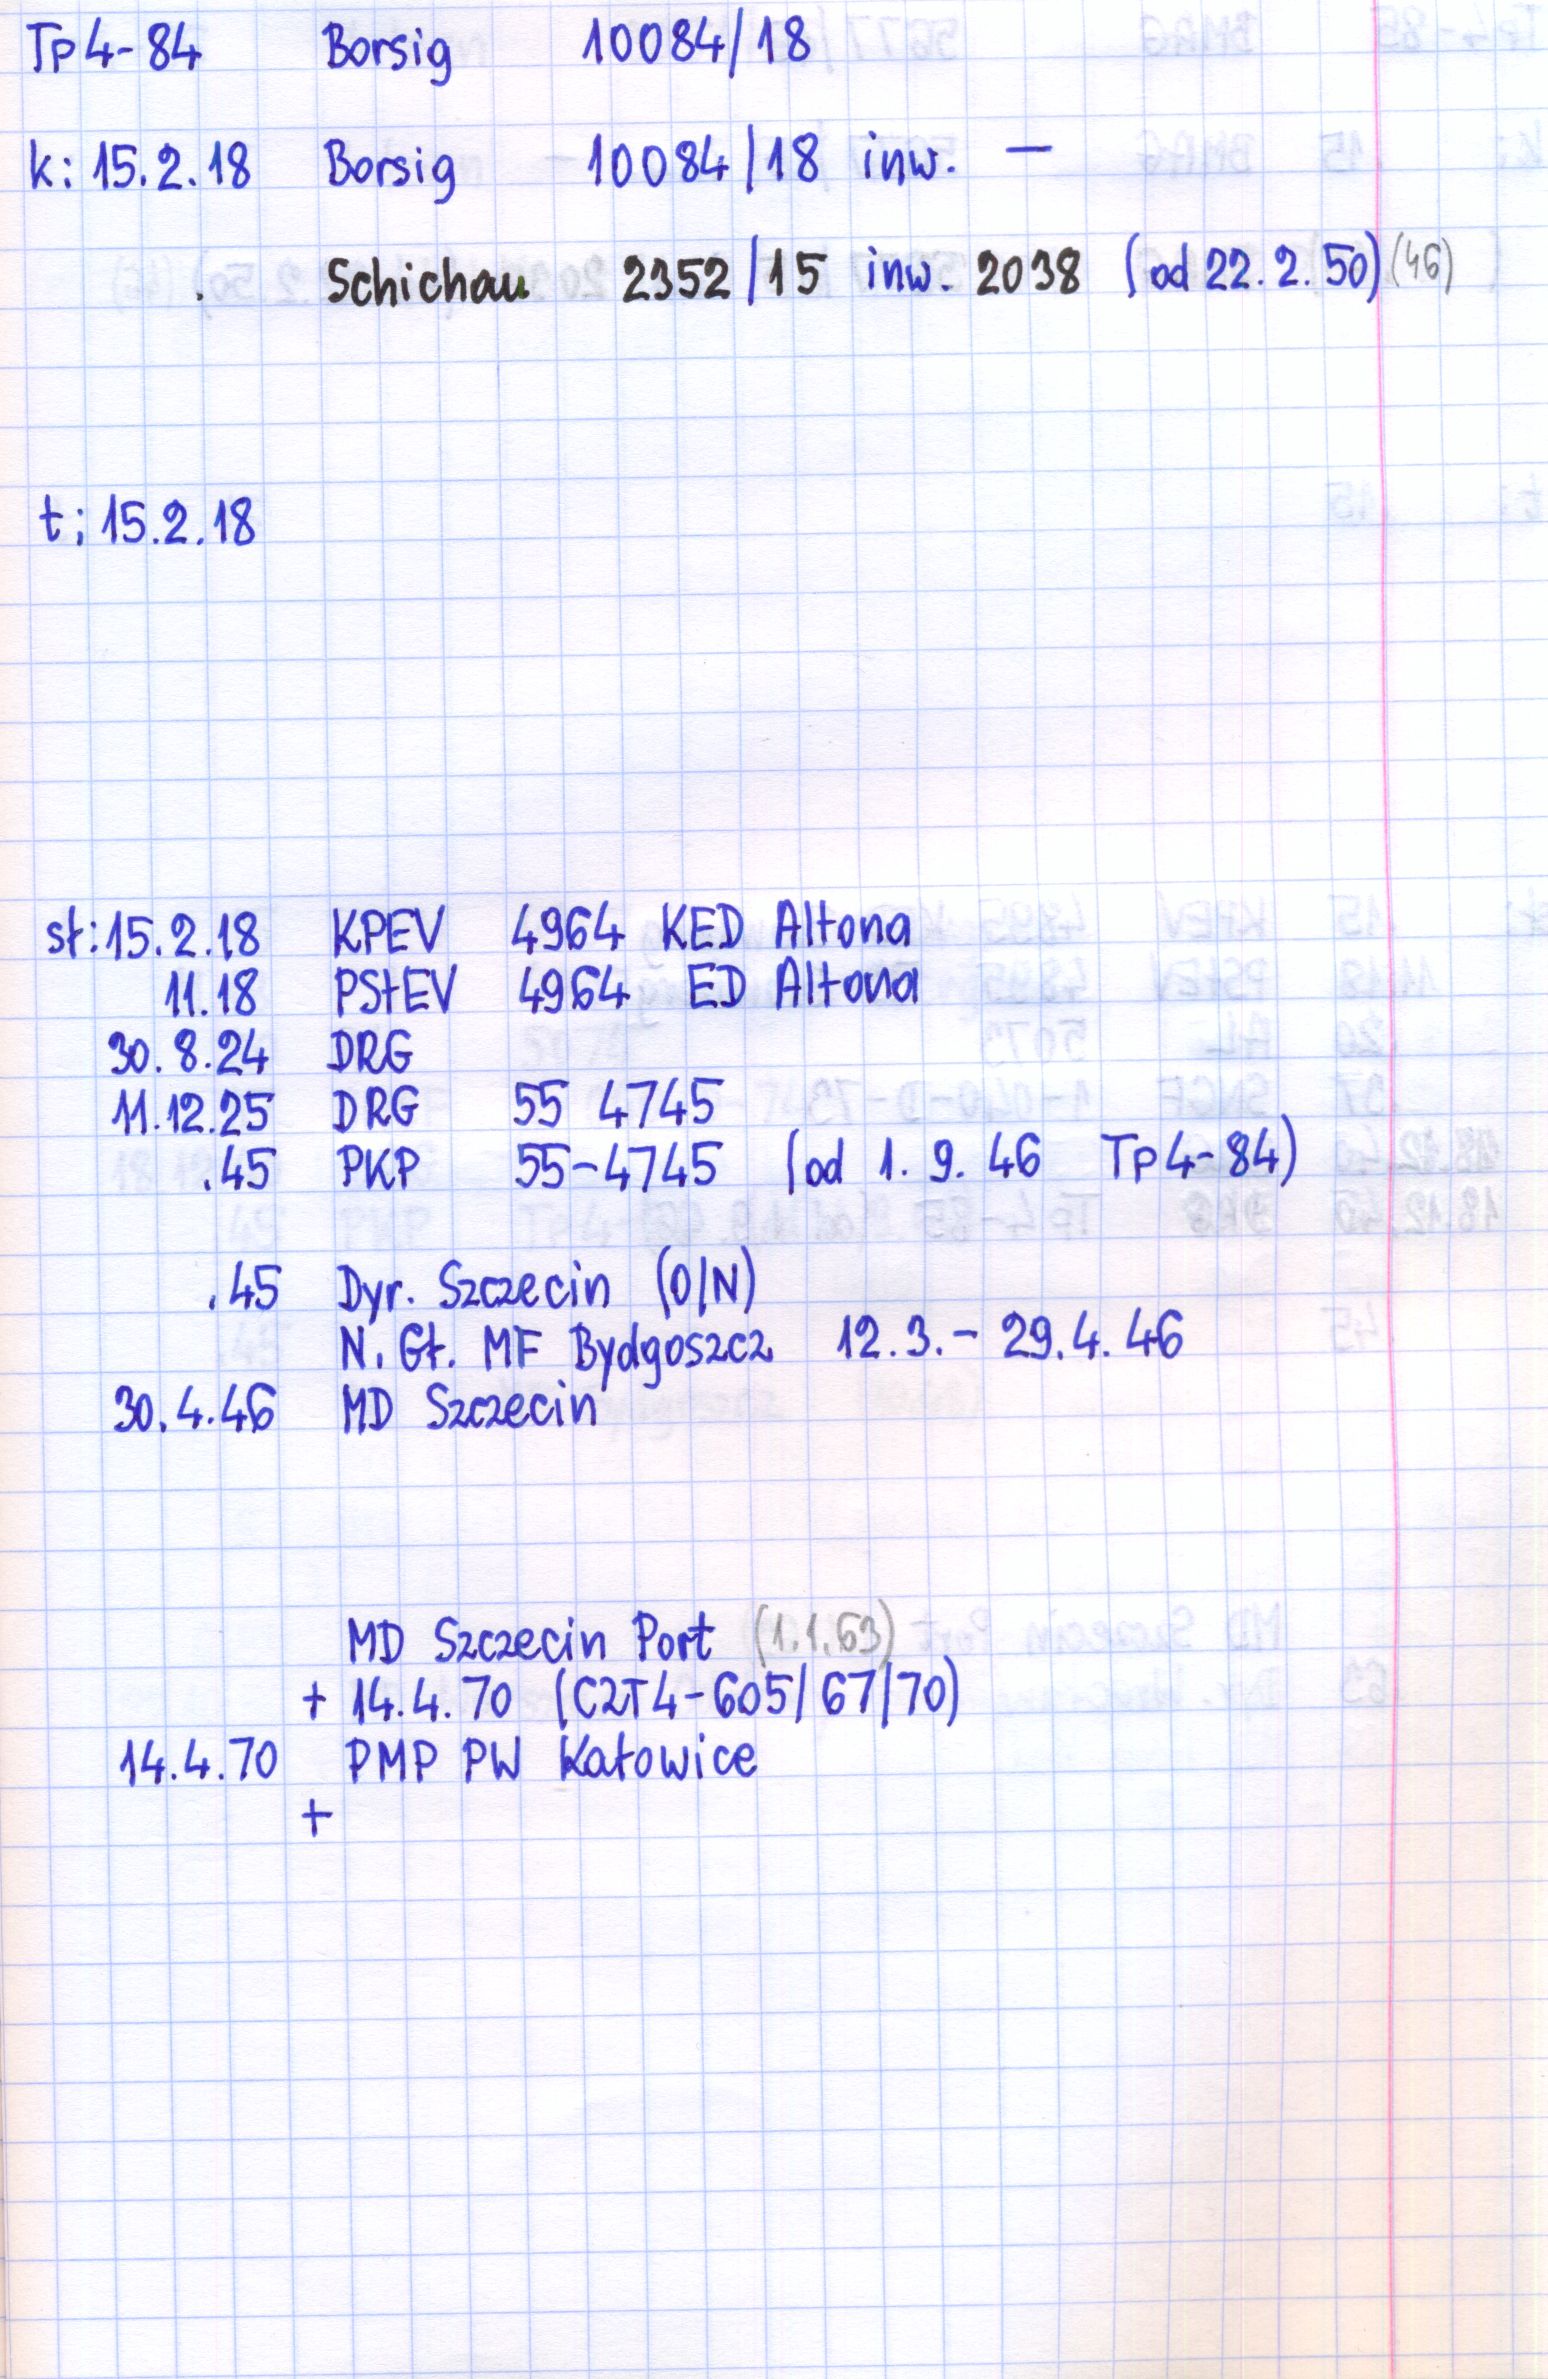 Tp4-84 Borsig 10084/18
k: 15.2.18 Borsig 10084/18 inw. —
. Schichau 2352/15 inw. 2038 (od 22.2.50) (46)
t: 15.2.18
st: 15.2.18 KPEV 4964 KED Altona
11.18 PStEV 4964 ED Altona
30.8.24 DRG
11.12.25 DRG 55 4745
.45 PKP 55-4745 (od 1.9.46 Tp4-84)
.45 Dyr. Szczecin (O/N)
N. Gł. MF Bydgoszcz 12.3.- 29.4.46
30.4.46 MD Szczecin
MD Szczecin Port (1.1.63)
+ 14.4.70 (C2T4-605/67/70)
14.4.70 PMP PW Katowice
+